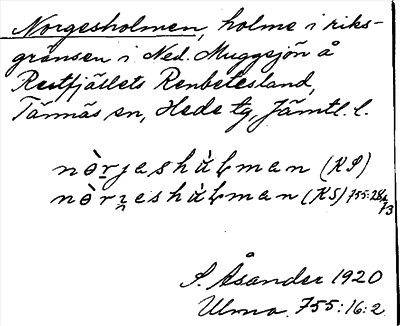 Norgesholmen, holme i riks-
gränsen i Ned. Muggsjön å
Rutfjällets Renbetesland,
Tännäs sn, Hede tg, Jämtl. l.
nòrjashàɫman (KS)
nòrn̥eshàɫman (KS) 755:28, 73
S. Åsander 1920
Ulma 755:16:2